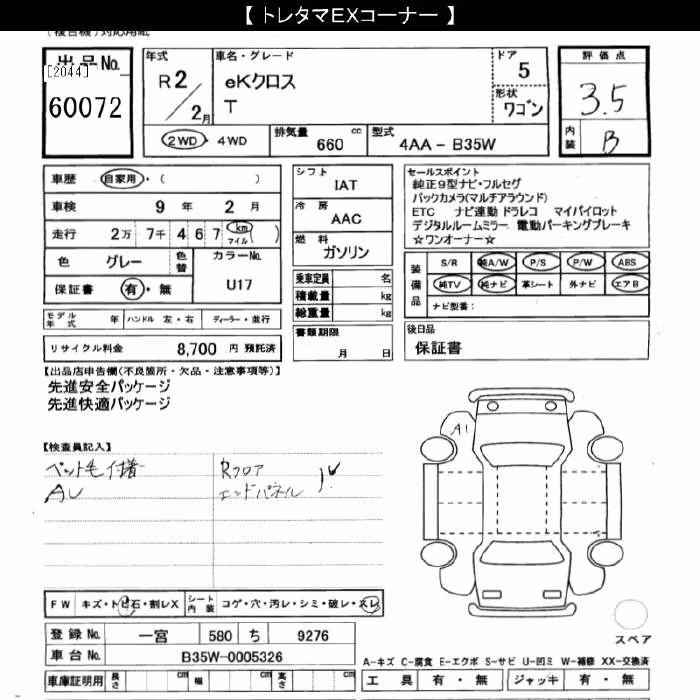 【 トレタマEXコーナー 】
(複合機)対応用紙
出品No.
[2044]
60072
年式
R2/2月
車名・グレード
eKクロス
T
ドア
5
形状
ワゴン
評価点
3.5
内装
B
2WD・4WD
排気量 660 cc
型式 4AA－B35W
車歴 自家用・( )
車検 9年 2月
走行 2万 7千 4 6 7 (km マイル)
色 グレー
色替
カラーNo.
U17
保証書 有・無
シフト
IAT
冷房
AAC
燃料
ガソリン
乗車定員 名
積載量 kg
総重量 kg
セールスポイント
純正9型ナビ・フルセグ
バックカメラ(マルチアラウンド)
ETC ナビ連動 ドラレコ マイパイロット
デジタルルームミラー 電動パーキングブレーキ
☆ワンオーナー☆
装備品
S/R 純A/W P/S P/W ABS
純TV 純ナビ 革シート 外ナビ エアB
ナビ型番：
モデル年式 年 ハンドル 左・右 ディーラー・並行
リサイクル料金 8,700 円 預託済
書類期限
月 日
後日品
保証書
【出品店申告欄(不良箇所・欠品・注意事項等)】
先進安全パッケージ
先進快適パッケージ
【検査員記入】
ペット毛付着
AU
Rフロア
エンドパネル
A1
FW キズ・トビ石・割レX
シート内装 コゲ・穴・汚レ・シミ・破レ・スレ
登録No. 一宮 580 ち 9276
車台No. B35W-0005326
車庫証明用 長さ cm 幅 cm 高さ cm
スペア
A－キズ C－腐食 E－エクボ S－サビ U－凹ミ W－補修 XX－交換済
工具 有・無 ジャッキ 有・無